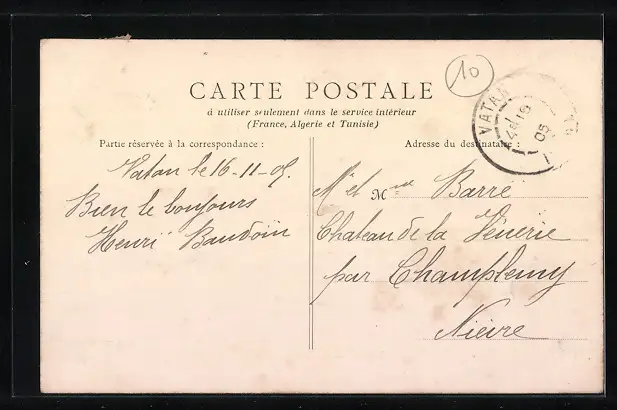 10
CARTE POSTALE
à utiliser seulement dans le service intérieur
(France, Algérie et Tunisie)
Partie réservée à la correspondance :
Adresse du destinataire :
VATAN
05
Vatan le 16-11-05
Bien le bonjours
Henri Baudoin
Mr et Mme Barre
Chateau de la Vénerie
par Champlemy
Nièvre